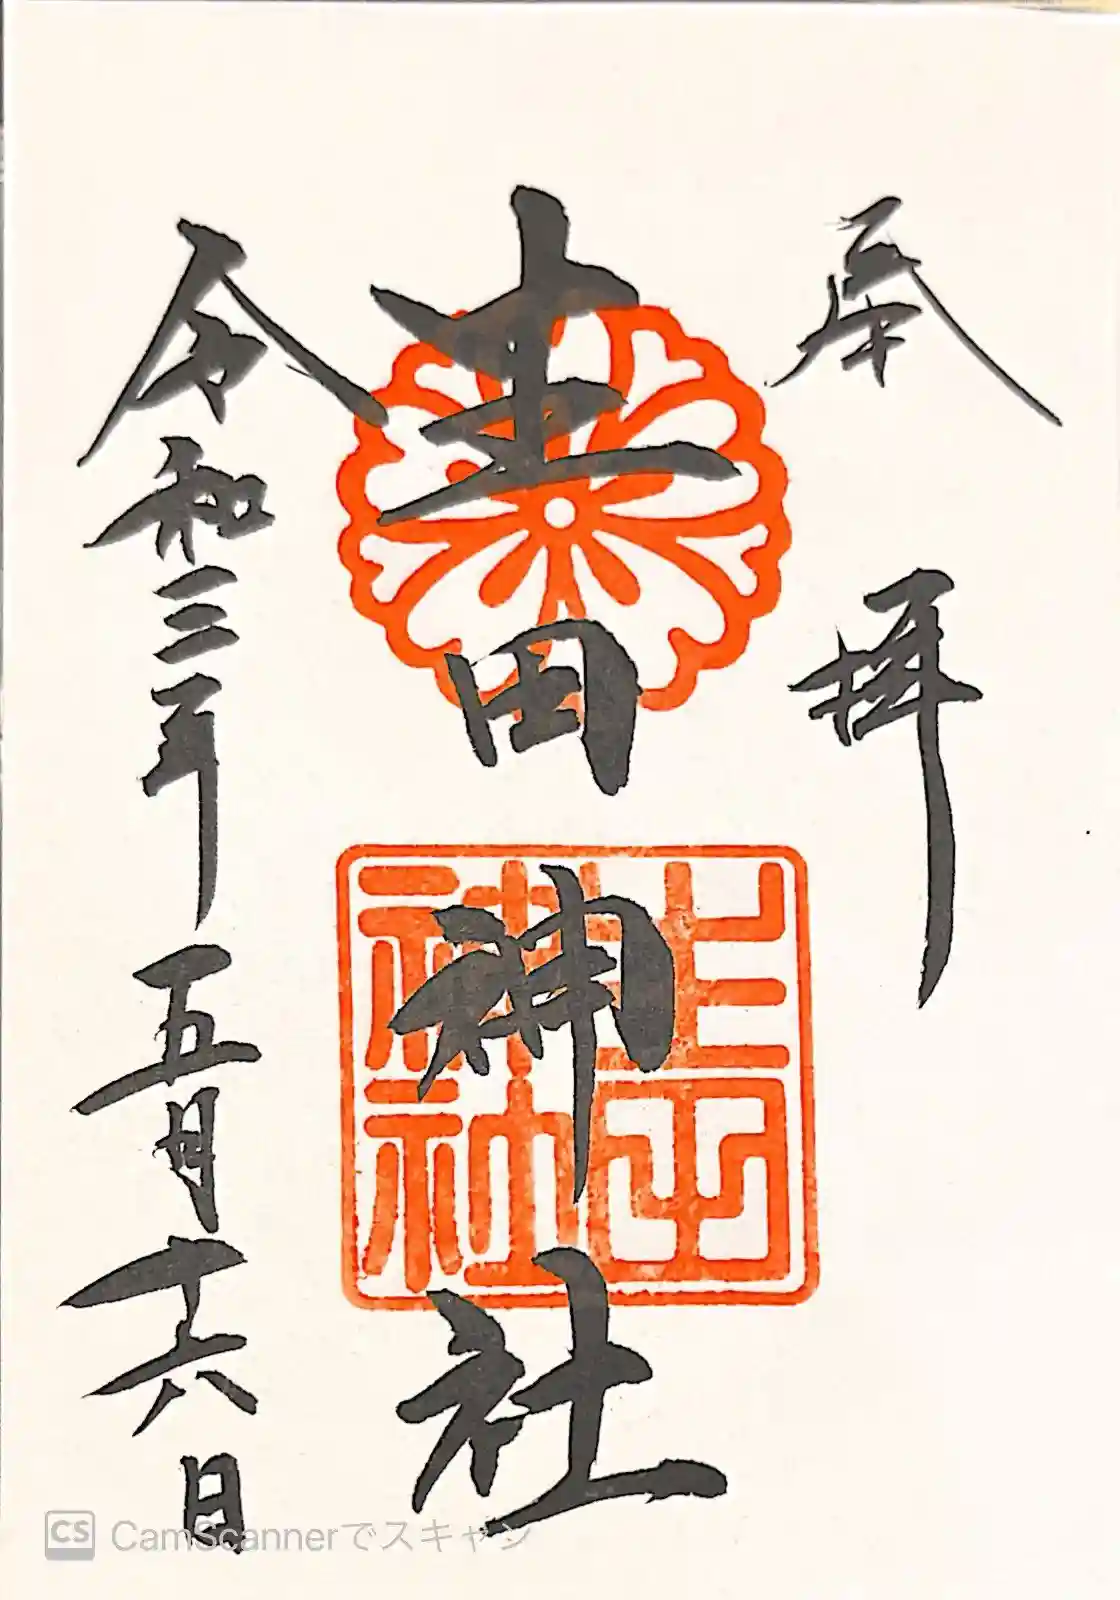 奉拝
生田神社
令和三年五月十六日
生田
神社
CS CamScannerでスキャン